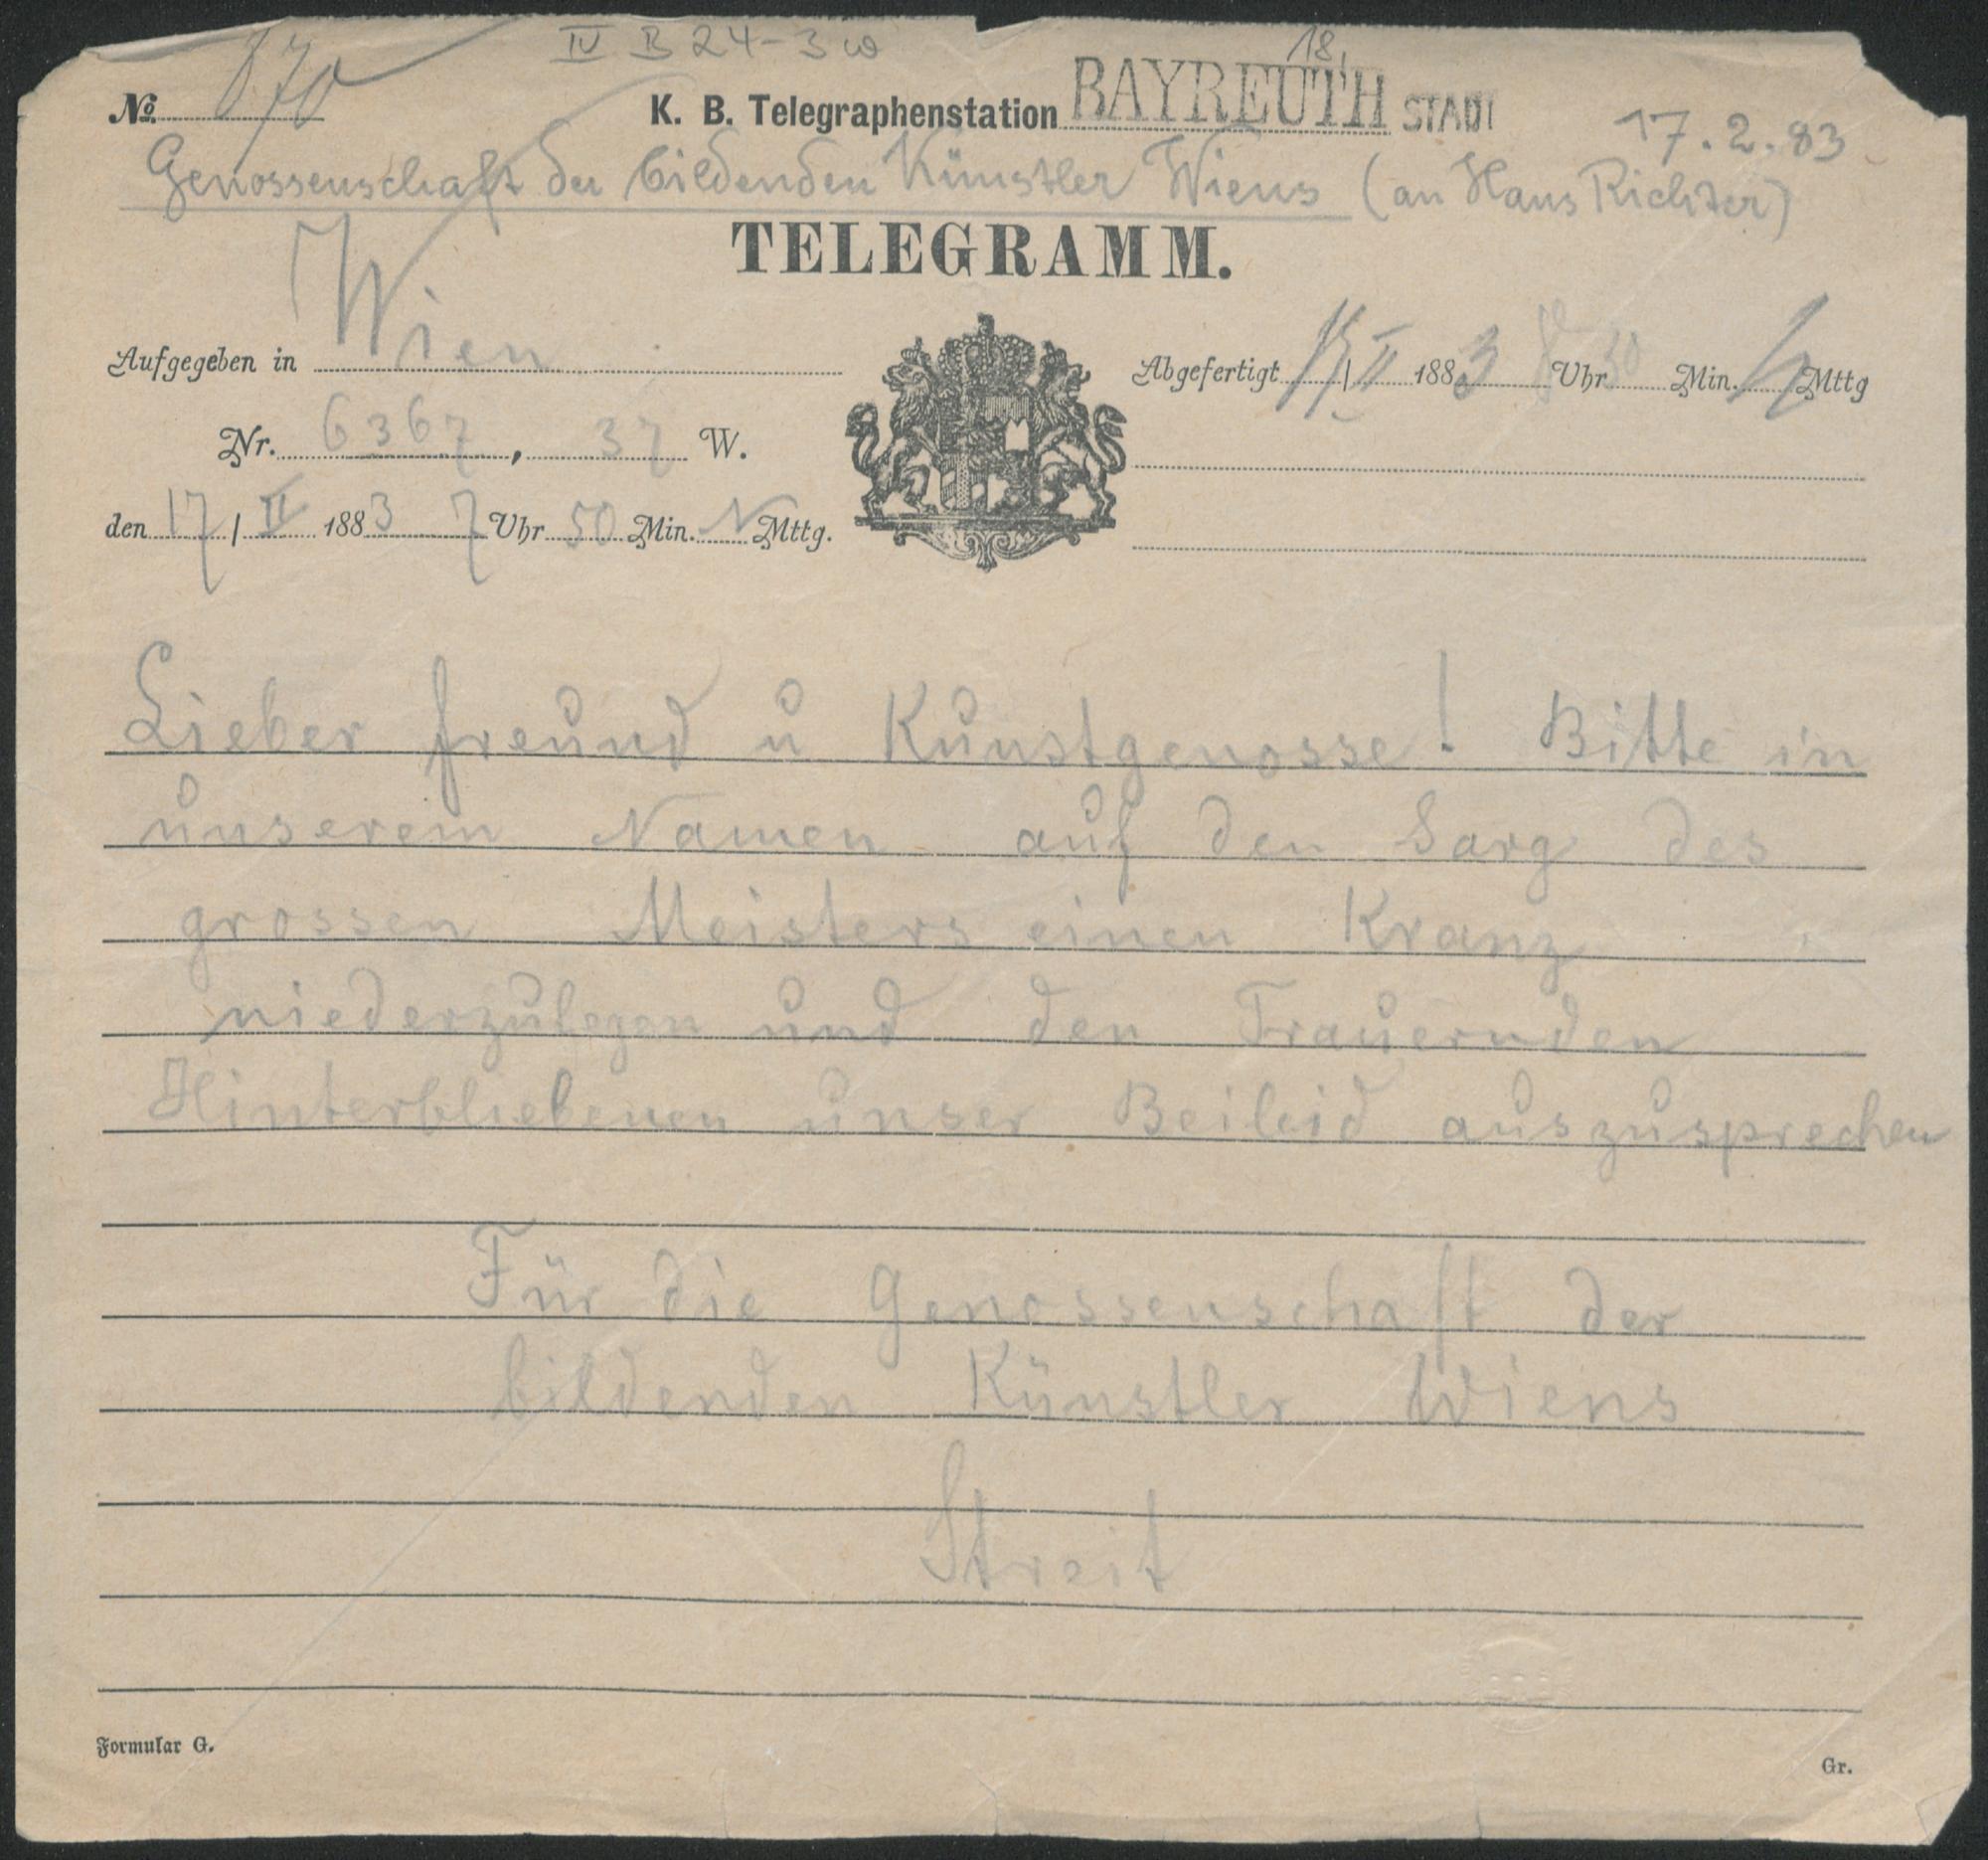 IV B 24-3 w
18,
No. 870 K. B. Telegraphenstation BAYREUTH STADT 17.2.83
Genossenschaft der bildenden Künstler Wiens (an Hans Richter)
TELEGRAMM.
Aufgegeben in Wien
Abgefertigt 17/II 1883 8 Uhr 30 Min. Mttg
Nr. 6367, 37 W.
den 17/II 1883 7 Uhr 50 Min. N Mttg.
Lieber freund u Kunstgenosse! Bitte in
unserem Namen auf den Sarg des
grossen Meisters einen Kranz
niederzulegen und den Trauernden
Hinterbliebenen unser Beileid auszusprechen
Für die Genossenschaft der
bildenden Künstler Wiens
Streit
Formular G.
Gr.